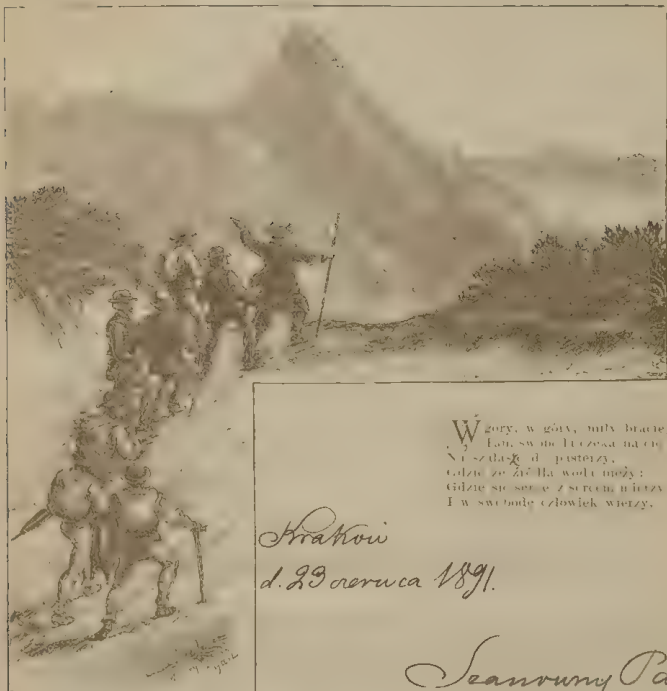 W góry, w góry, miły bracie
Tam swoboda czeka na cię
Na szałasze do pasterzy,
Gdzie ze źródła woda bieży;
Gdzie się serce z sercem mierzy
I w swobodę człowiek wierzy.
Kraków
d. 23 czerwca 1891.
Szanowny Pa